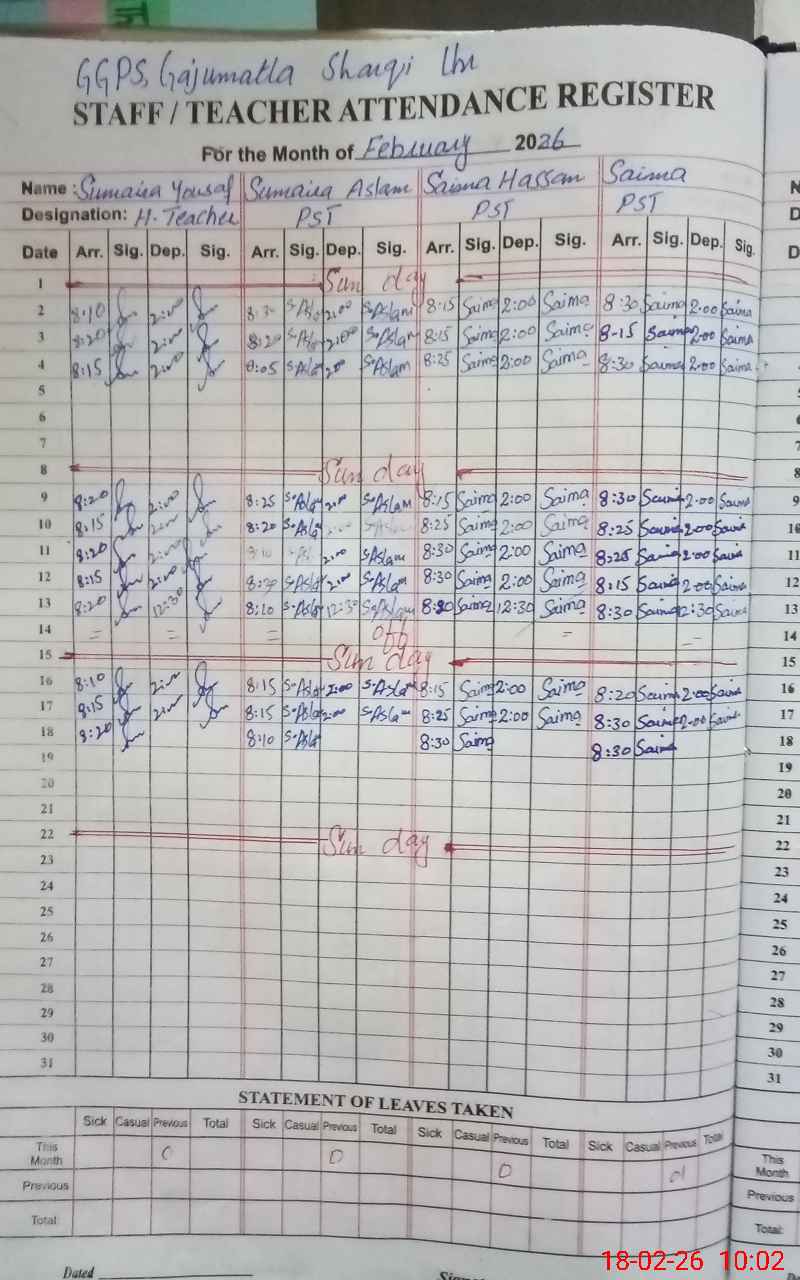 GGPS, Gajumatta Sharqi Lhr
STAFF / TEACHER ATTENDANCE REGISTER
For the Month of February 2026
Name : Sumaira Yousaf Sumaira Aslam Saima Hassan Saima
Designation: H. Teacher PST PST PST
Date Arr. Sig. Dep. Sig. Arr. Sig. Dep. Sig. Arr. Sig. Dep. Sig. Arr. Sig. Dep. Sig.
1 Sunday
2 8:10 2:00 2:00 S.Aslam 8:15 Saima 2:00 Saima 8:30 Saima 2:00 Saima
3 8:20 2:00 8:20 2:00 S.Aslam 8:15 Saima 2:00 Saima 8-15 Saima 2:00 Saima
4 8:15 2:00 8:05 S.Asla 2:00 S.Aslam 8:25 Saima 2:00 Saima 8:30 Saima 2:00 Saima
5
6
7
8 Sunday 8
9 8:20 2:00 8:25 S.Asla 2:00 S.Aslam 8:15 Saima 2:00 Saima 8:30 Saima 2:00 Saima 9
10 8:15 2:00 8:20 S.Asla 8:25 Saima 2:00 Saima 8:25 Saima 2:00 Saima 10
11 8:20 2:00 2:00 S.Aslam 8:30 Saima 2:00 Saima 8:25 Saima 2:00 Saima 11
12 8:15 2:00 S.Asla 2:00 S.Aslam 8:30 Saima 2:00 Saima 8:15 Saima 2:00 Saima 12
13 8:20 12:30 8:10 S.Asla 12:30 S.Aslam 8:20 Saima 12:30 Saima 8:30 Saima 12:30 Saima 13
14 = = = off = = 14
15 Sunday 15
16 8:10 2:00 8:15 S.Asla 2:00 S.Aslam 8:15 Saima 2:00 Saima 8:20 Saima 2:00 Saima 16
17 8:15 2:00 8:15 S.Asla 2:00 S.Aslam 8:25 Saima 2:00 Saima 8:30 Saima 2:00 Saima 17
18 8:20 8:10 S.Asla 8:30 Saima 8:30 Saima 18
19 19
20 20
21 21
22 Sunday 22
23 23
24 24
25 25
26 26
27 27
28 28
29 29
30 30
31 31
STATEMENT OF LEAVES TAKEN
Sick Casual Previous Total Sick Casual Previous Total Sick Casual Previous Total Sick Casual Previous Total
This Month 0 0 0 01 This Month
Previous Previous
Total: Total:
Dated
18-02-26 10:02